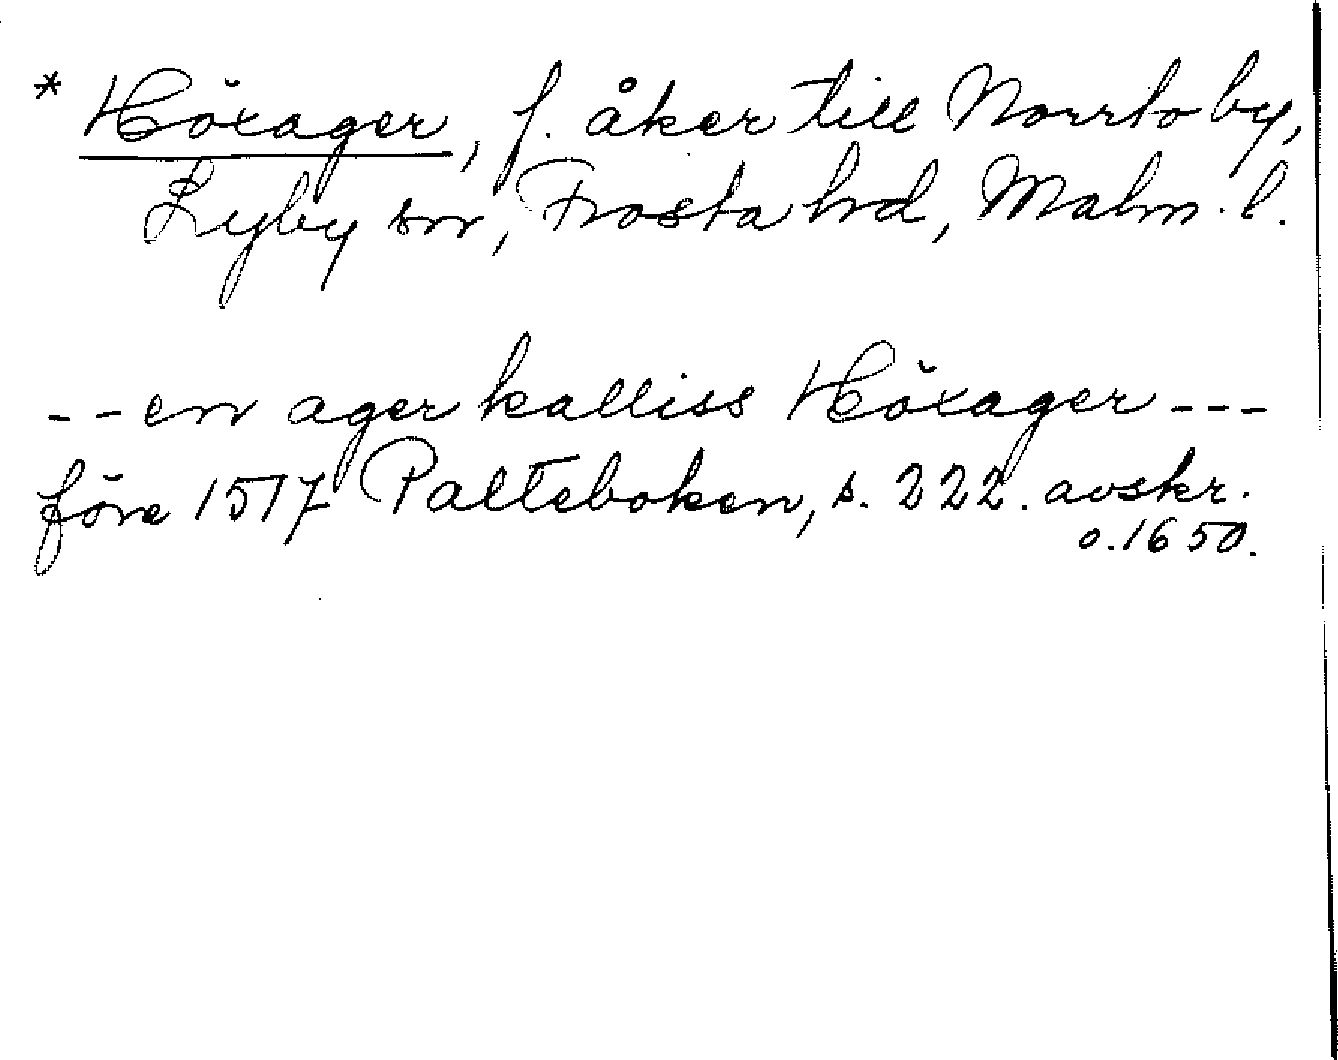 * Höxager, f. åker till Norrto by,
Lyby sn, Frosta hd, Malm. l.
- - en ager kalliss Höxager - - -
före 1517 Palteboken, s. 222. avskr.
o. 1650.